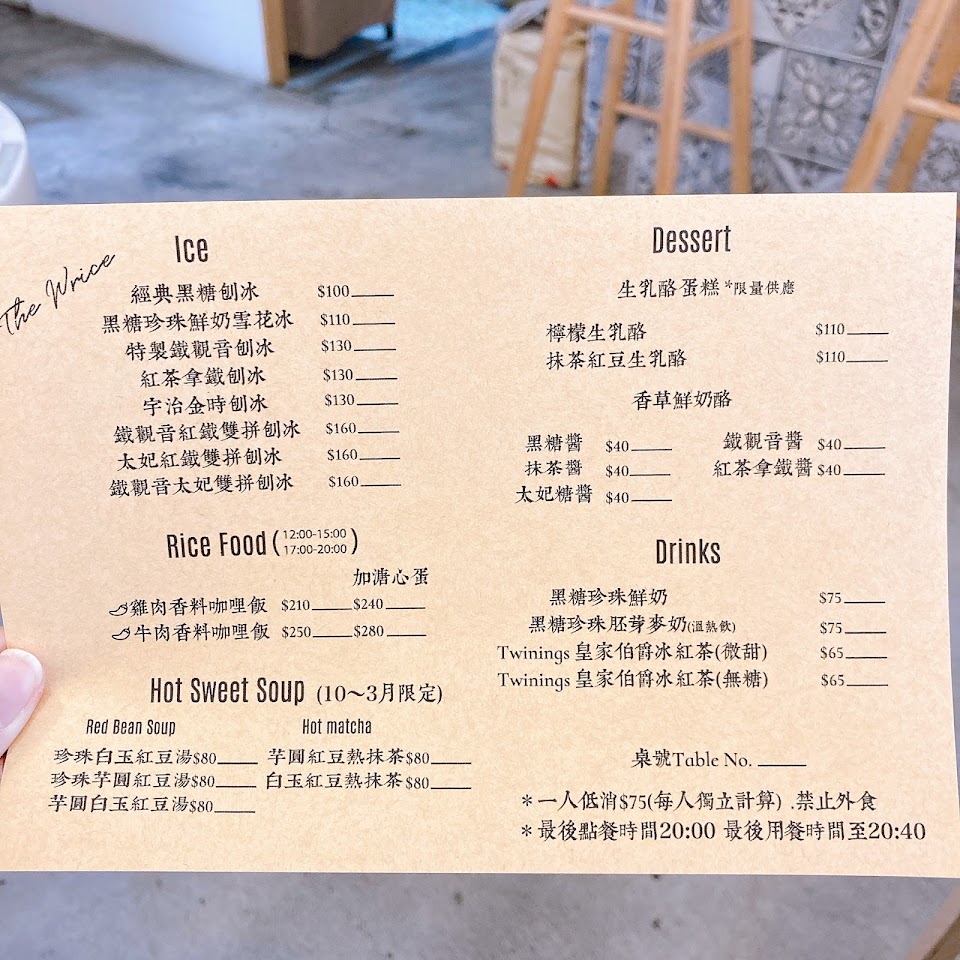 The Wrice
Ice
經典黑糖刨冰 $100
黑糖珍珠鮮奶雪花冰 $110
特製鐵觀音刨冰 $130
紅茶拿鐵刨冰 $130
宇治金時刨冰 $130
鐵觀音紅鐵雙拼刨冰 $160
太妃紅鐵雙拼刨冰 $160
鐵觀音太妃雙拼刨冰 $160
Rice Food (12:00-15:00 17:00-20:00)
加溏心蛋
雞肉香料咖哩飯 $210 $240
牛肉香料咖哩飯 $250 $280
Hot Sweet Soup (10～3月限定)
Red Bean Soup Hot matcha
珍珠白玉紅豆湯$80 芋圓紅豆熱抹茶$80
珍珠芋圓紅豆湯$80 白玉紅豆熱抹茶$80
芋圓白玉紅豆湯$80
Dessert
生乳酪蛋糕 *限量供應
檸檬生乳酪 $110
抹茶紅豆生乳酪 $110
香草鮮奶酪
黑糖醬 $40 鐵觀音醬 $40
抹茶醬 $40 紅茶拿鐵醬 $40
太妃糖醬 $40
Drinks
黑糖珍珠鮮奶 $75
黑糖珍珠胚芽麥奶(溫熱飲) $75
Twinings 皇家伯爵冰紅茶(微甜) $65
Twinings 皇家伯爵冰紅茶(無糖) $65
桌號Table No.
＊一人低消$75(每人獨立計算) .禁止外食
＊最後點餐時間20:00 最後用餐時間至20:40